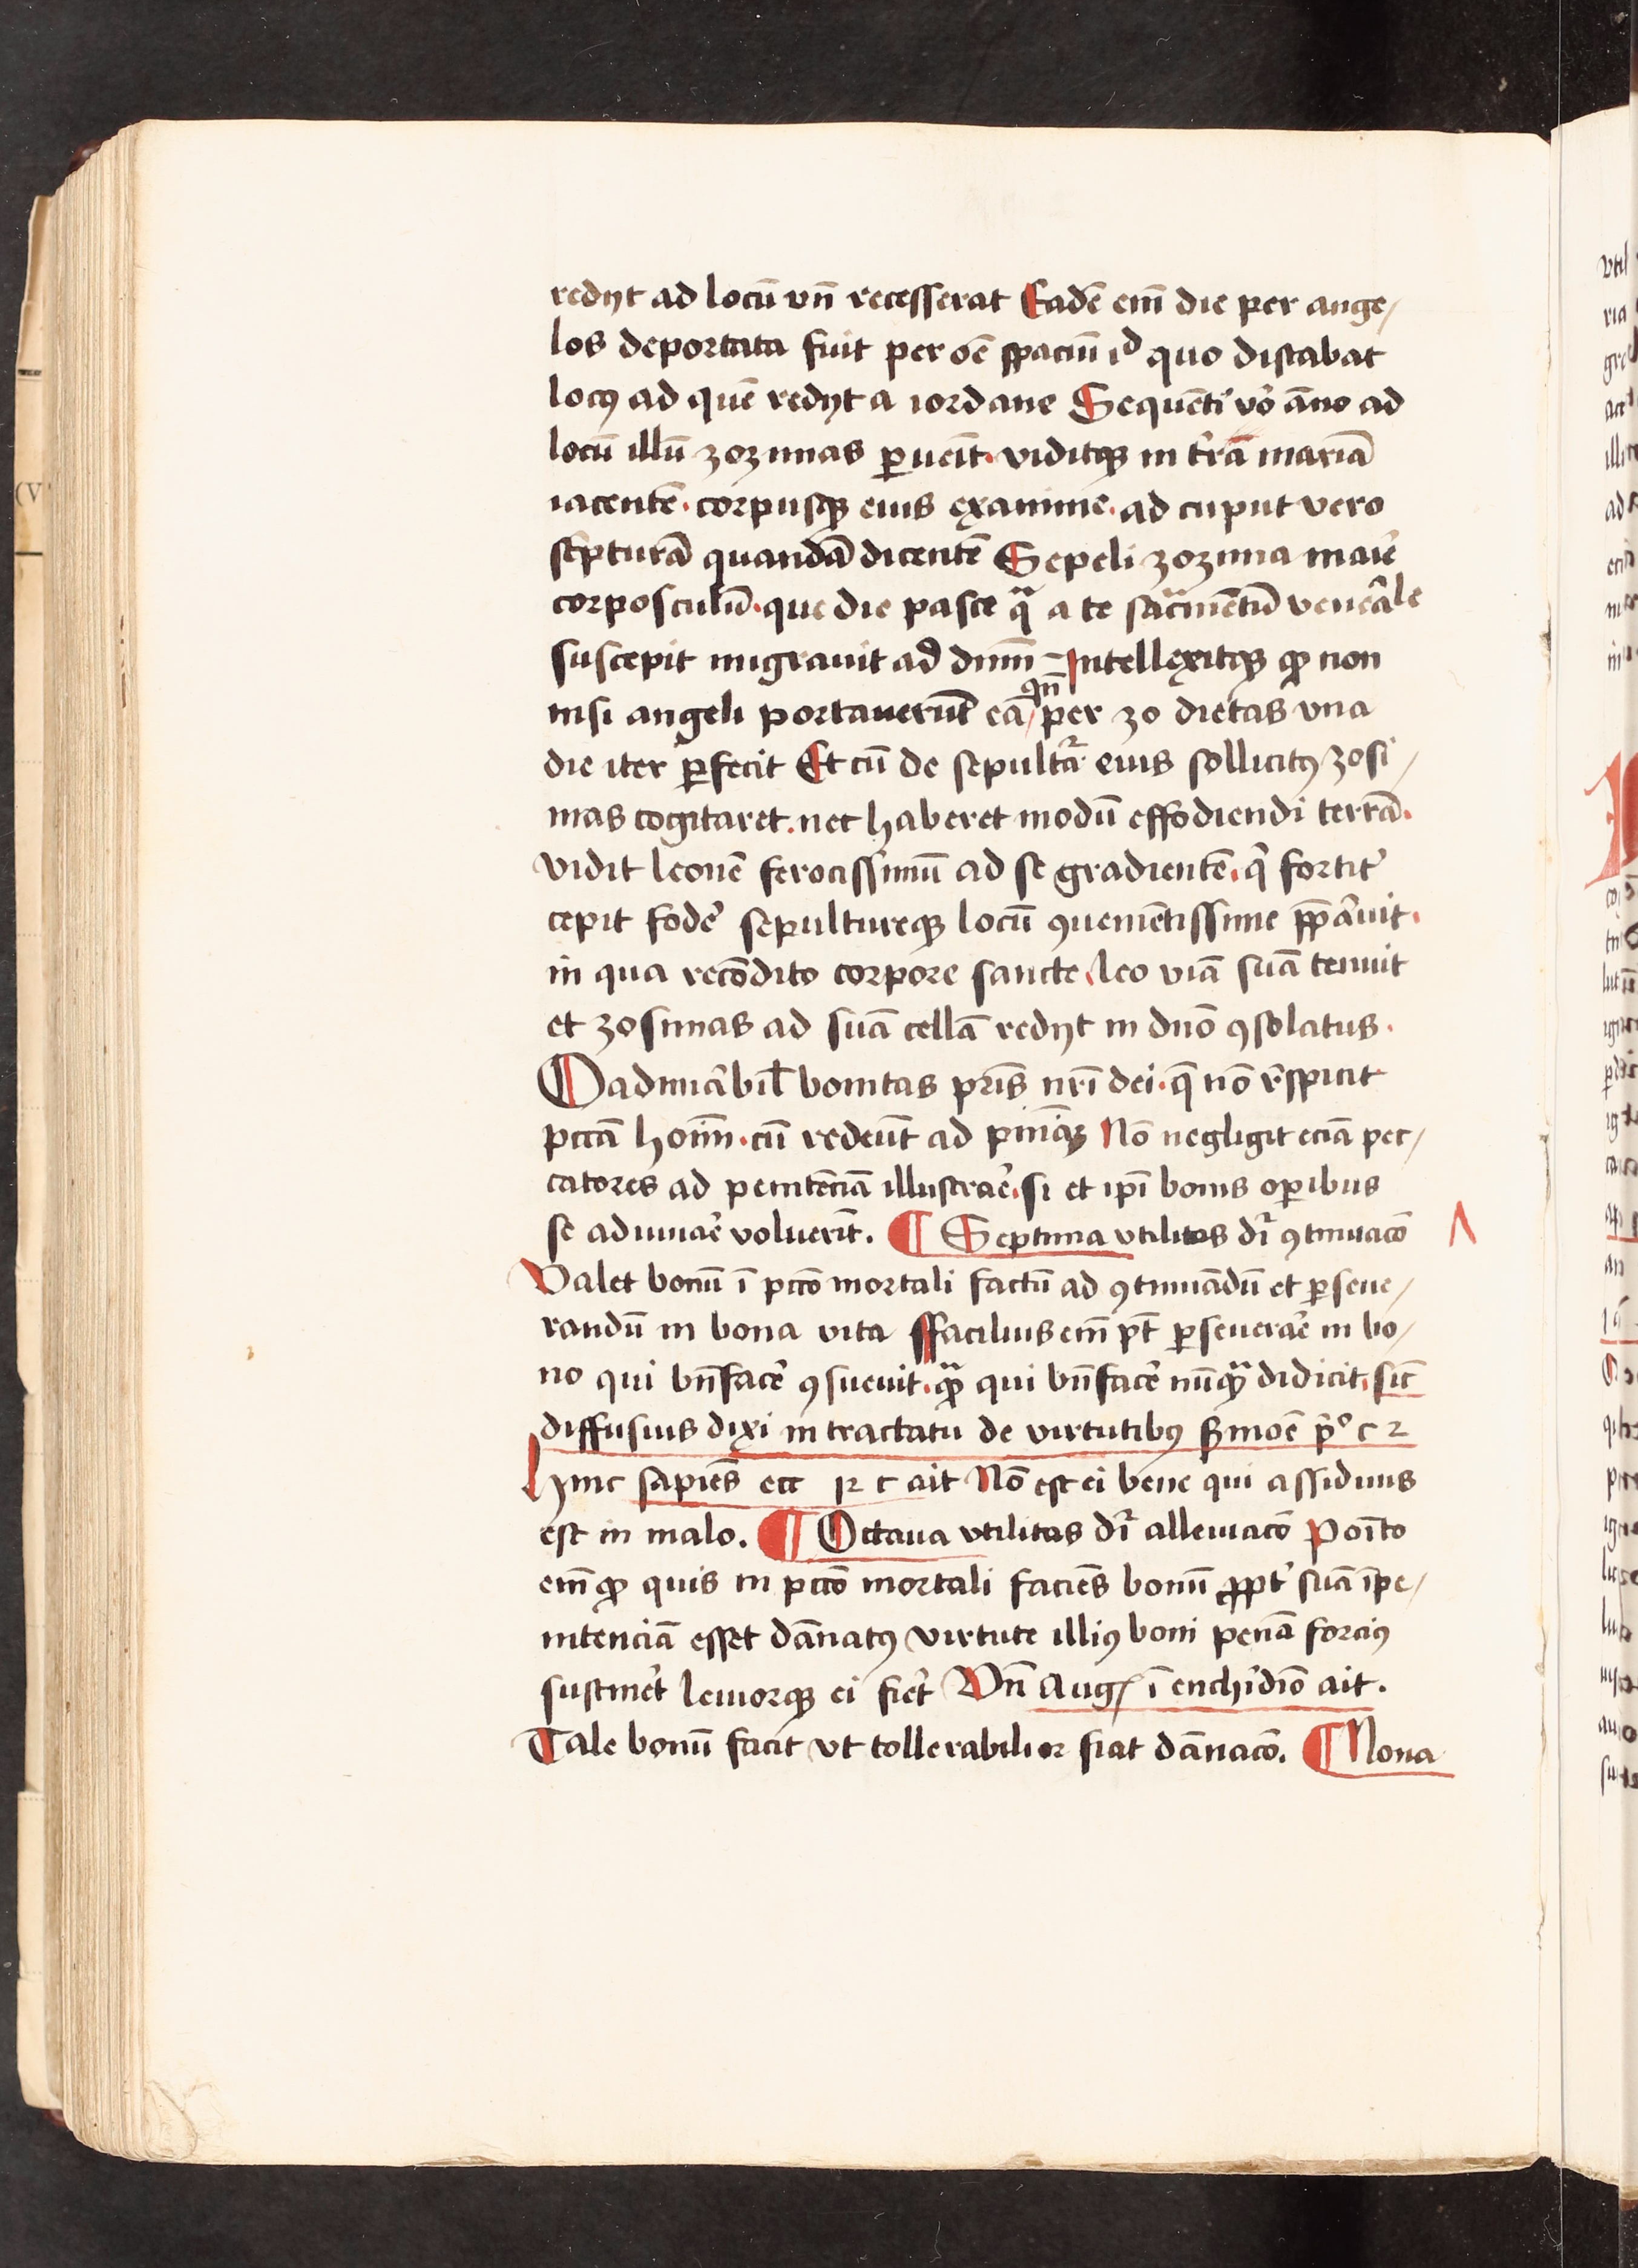 redijt ad locū vn̄ recesserat Eadē em̄ die per ange/
los deportata fuit per oē spaciū id quo distabat
locꝰ ad quē redijt a iordane Sequēti vo᷒ āno ad
locū illū zozimas ꝑuēit. viditqꝫ in tr̄ā mariā
iacentē. corpusqꝫ eius exanime. ad cuput vero
sc̓pturā quandā dicentē Sepeli zozima marie᷒
corposculū. que die pasce qᷓ a te sac̓mētū venea᷒le
suscepit migrauit ad dnm̄ Intellexitqꝫ ꝙ non
nisi angeli portauerūt eā/ qn̄ per 30 dietas vna
die iter ꝑfecit Et cū de sepultᷓ eius sollicitꝰ zosi/
mas cogitaret. nec haberet modū effodiendi terrā.
vidit leonē ferocissimū ad se gradientē. q̓ fortit᷒
cepit fode᷒ sepultureqꝫ locū ꝯuenientissime ppa᷒uit.
in qua recōdito corpore sancte, leo viā suā tenuit
et zosimas ad suā cellā redijt in dn̄o ꝯsolatus.
O admia᷒bil̄ bonitas pr̄is nr̄i dei. q̄ nō r᷒spicit
pcc̄ā hoīm̄. cū redeūt ad pn̄iāꝫ Nō negligit eciā pec/
catores ad penitēciā illustrae᷒. si et ip̄i bonis oꝑibus
se adiuuae᷒ voluerīt. ¶ Septima vtilitas dr̄ ꝯtinuac̄o
Valet bonū ī pcc̄o mortali factū ad ꝯtinuādū et ꝑseue/
randū in bona vita ffacilius em̄ pt̄ ꝑseuerae᷒ in bo/
no qui bn̄face᷒ ꝯsueuit. qᷓꝫ qui bn̄face᷒ nūqᷓꝫ didicit. sic̄
diffusius dixi in tractatu de virtutibꝰ s᷒moē p̄º c 2
Hinc sapiēs ecc 12 c ait Nō est ei bene qui assiduus
est in malo. ¶ Octaua vtilitas dr̄ alleuiac̄o Poīto
em̄ ꝙ quis in pcc̄o mortali faciēs bonū ꝓpt᷒ suā īpe/
nitenciā esset dānatꝰ virtute illiꝰ boni penā forciꝰ
sustine᷒t leuiorqꝫ ei fie᷒t Vn̄ Aug ī enchi᷒diō ait.
Tale bonū facit vt tollerabilior fiat dānac̄o. ¶ Nona